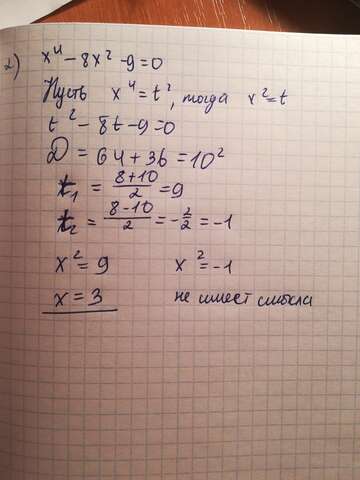 2) x⁴ - 8x² - 9 = 0
Пусть x⁴ = t², тогда x² = t
t² - 8t - 9 = 0
D = 64 + 36 = 10²
t₁ = (8+10)/2 = 9
t₂ = (8-10)/2 = -2/2 = -1
x² = 9 x² = -1
x = 3 не имеет смысла